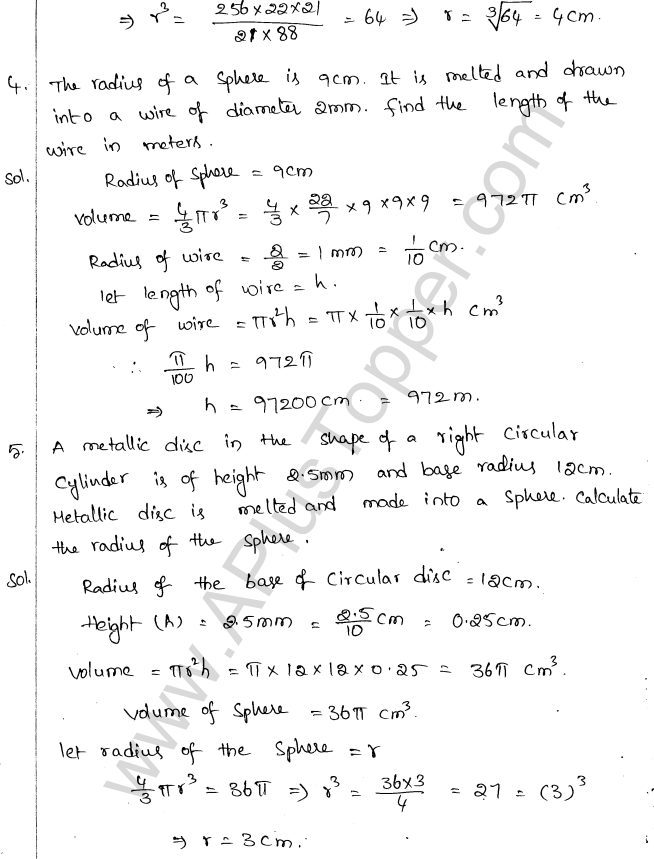 ⇒ r³ = 256×22×21 / 21×88 = 64 ⇒ r = ∛64 = 4cm.
4. The radius of a Sphere is 9cm. It is melted and drawn
into a wire of diameter 2mm. find the length of the
wire in meters.
Sol. Radius of Sphere = 9cm
Volume = 4/3 πr³ = 4/3 × 22/7 × 9×9×9 = 972π cm³
Radius of wire = 2/2 = 1mm = 1/10 cm.
let length of wire = h.
Volume of wire = πr²h = π × 1/10 × 1/10 × h cm³
∴ π/100 h = 972π
⇒ h = 97200cm = 972m.
5. A metallic disc in the shape of a right circular
Cylinder is of height 2.5mm and base radius 12cm.
Metallic disc is melted and made into a Sphere. Calculate
the radius of the Sphere.
Sol. Radius of the base of Circular disc = 12cm.
Height (h) = 2.5mm = 2.5/10 cm = 0.25cm.
Volume = πr²h = π×12×12×0.25 = 36π cm³.
Volume of Sphere = 36π cm³.
let radius of the Sphere = r
4/3 πr³ = 36π ⇒ r³ = 36×3/4 = 27 = (3)³
⇒ r = 3cm.
www.APlusTopper.com